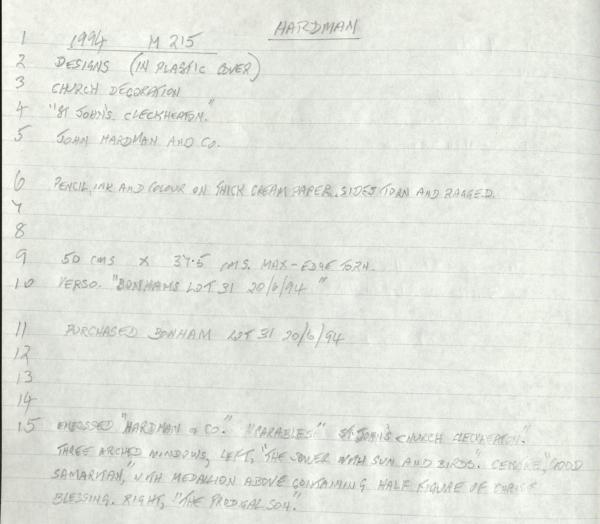 HARDMAN
1 1994 M 215
2 DESIGNS (IN PLASTIC COVER)
3 CHURCH DECORATION
4 "ST JOHN'S. CLECKHEATON."
5 JOHN HARDMAN AND CO.
6 PENCIL, INK AND COLOUR ON THICK CREAM PAPER. SIDES TORN AND RAGGED.
7
8
9 50 CMS X 37.5 CMS. MAX - EDGE TORN.
10 VERSO. "BONHAMS LOT 31 20/6/94"
11 PURCHASED BONHAM LOT 31 20/6/94
12
13
14
15 EMBOSSED "HARDMAN & CO." "PARABLES" ST. JOHN'S CHURCH CLECKHEATON".
THREE ARCHED WINDOWS, LEFT, "THE SOWER WITH SUN AND BIRDS". CENTRE, "GOOD
SAMARITAN," WITH MEDALLION ABOVE CONTAINING HALF FIGURE OF CHRIST
BLESSING. RIGHT, "THE PRODIGAL SON."